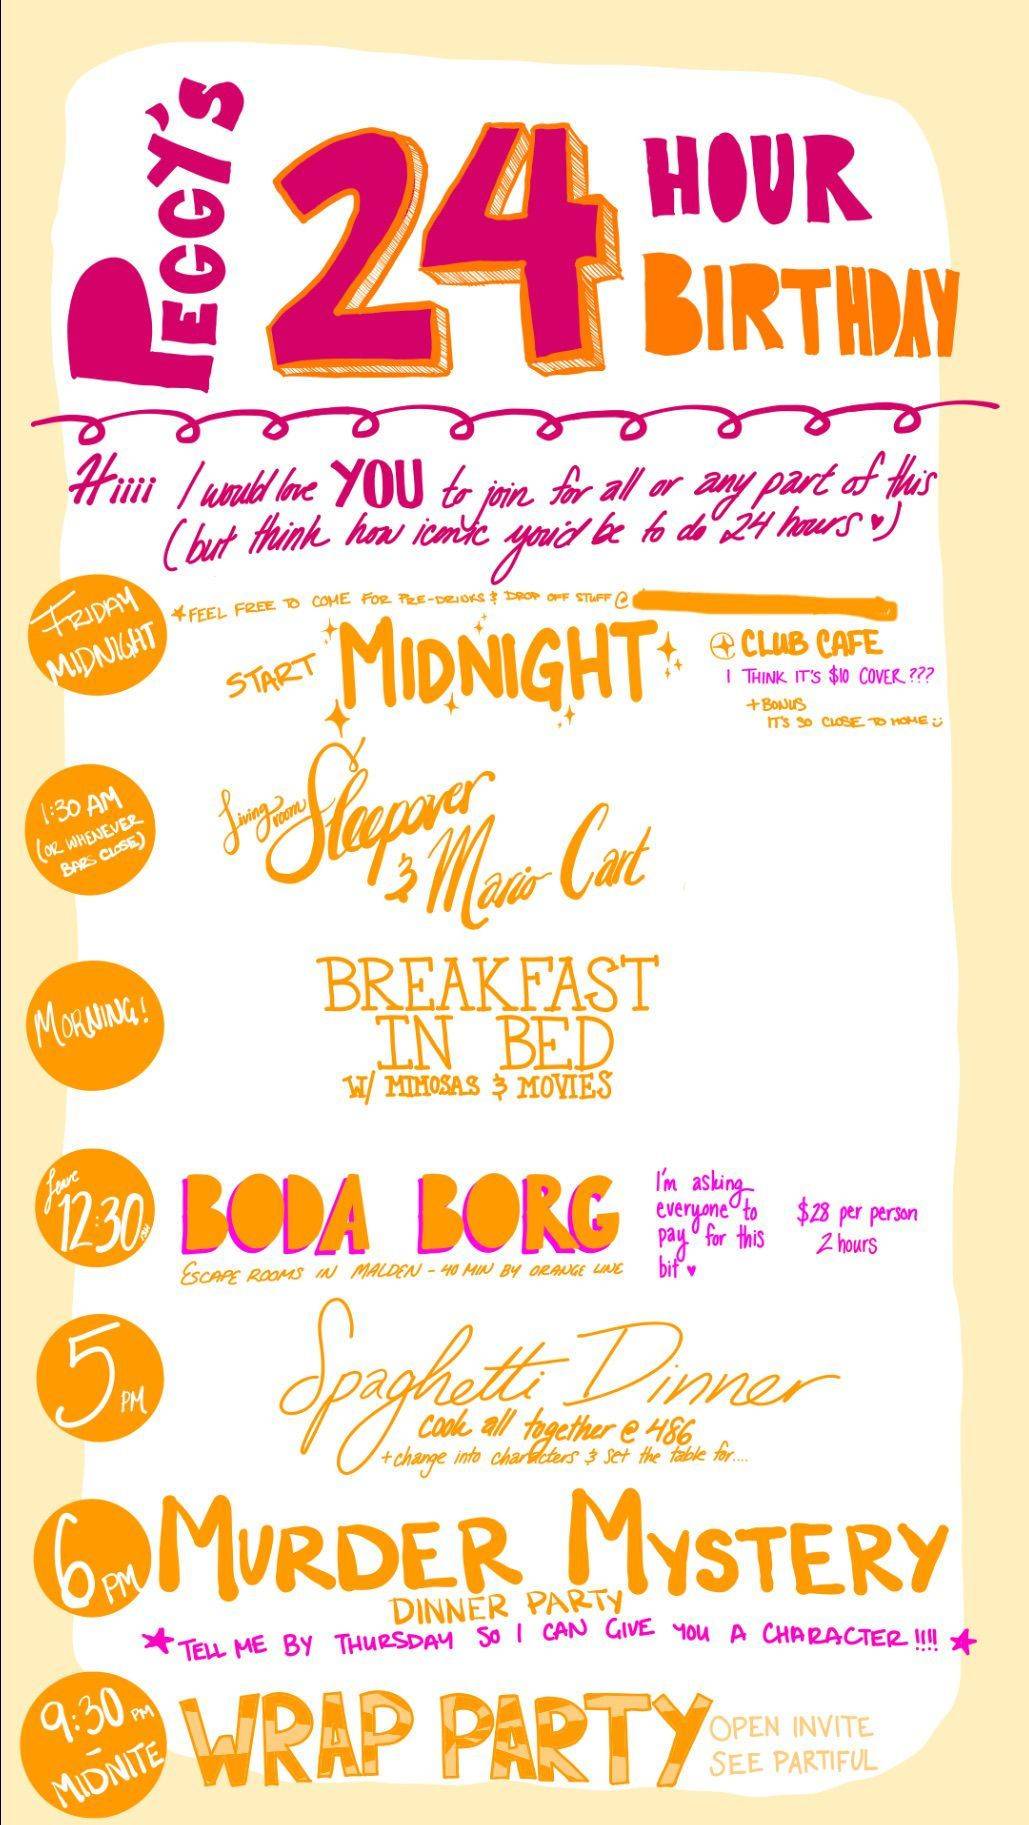 PEGGY'S
24
HOUR
BIRTHDAY
Hiiii I would love YOU to join for all or any part of this
(but think how iconic you'd be to do 24 hours ♥)
FRIDAY
MIDNIGHT
★FEEL FREE TO COME FOR PRE-DRINKS & DROP OFF STUFF @
START MIDNIGHT
CLUB CAFE
I THINK IT'S $10 COVER???
+ BONUS
IT'S SO CLOSE TO HOME :)
1:30 AM
(OR WHENEVER
BARS CLOSE)
Living room Sleepover
& Mario Cart
MORNING!
BREAKFAST
IN BED
W/ MIMOSAS & MOVIES
Leave
12:30
BODA BORG
ESCAPE ROOMS IN MALDEN - 40 MIN BY ORANGE LINE
I'm asking
everyone to
pay for this
bit ♥
$28 per person
2 hours
5 PM
Spaghetti Dinner
cook all together @ 486
+ change into characters & set the table for....
6 PM
MURDER MYSTERY
DINNER PARTY
★ TELL ME BY THURSDAY SO I CAN GIVE YOU A CHARACTER!!!! ★
9:30 PM
-
MIDNITE
WRAP PARTY
OPEN INVITE
SEE PARTIFUL